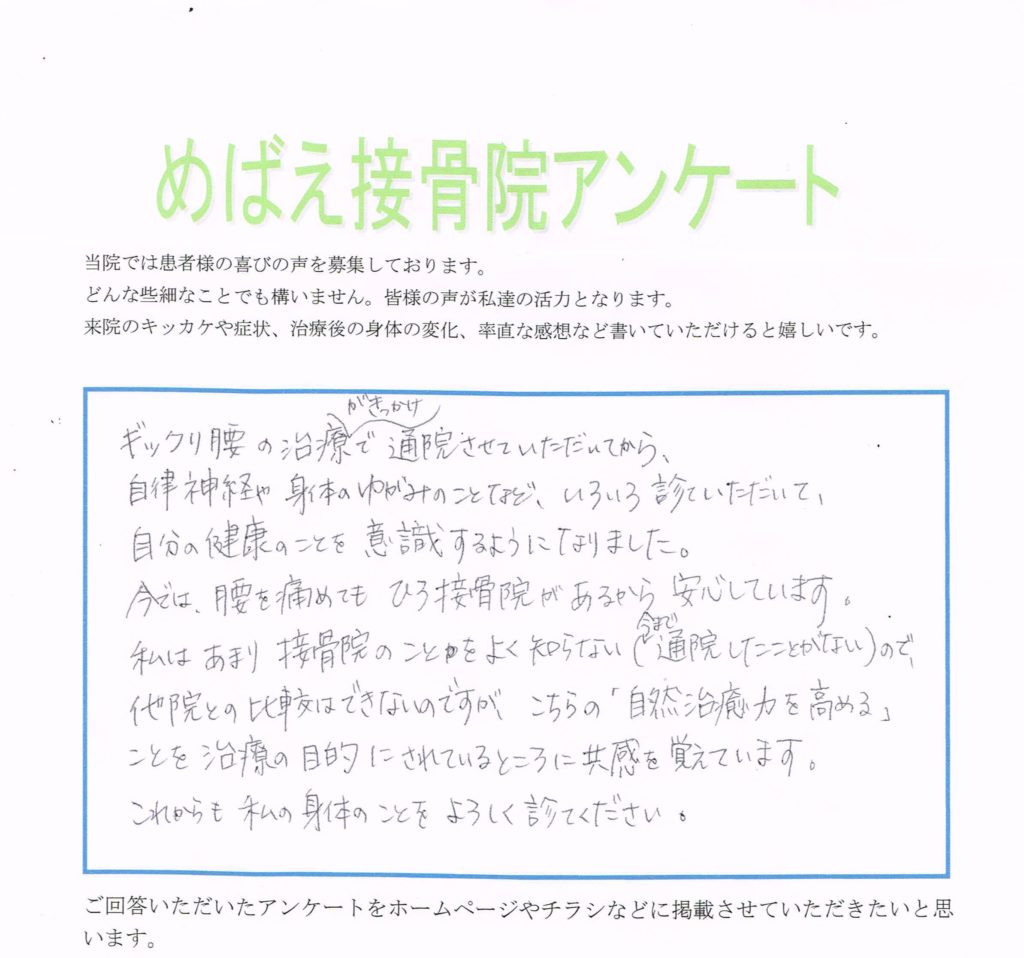 めばえ接骨院アンケート
当院では患者様の喜びの声を募集しております。
どんな些細なことでも構いません。皆様の声が私達の活力となります。
来院のキッカケや症状、治療後の身体の変化、率直な感想など書いていただけると嬉しいです。
がきっかけ
ギックリ腰の治療で通院させていただいてから、
自律神経や身体のゆがみのことなど、いろいろ診ていただいて、
自分の健康のことを意識するようになりました。
今では、腰を痛めてもひろ接骨院があるから安心しています。
今まで
私はあまり接骨院のことをよく知らない(通院したことがない)ので、
他院との比較はできないのですが、こちらの「自然治癒力を高める」
ことを治療の目的にされているところに共感を覚えています。
これからも私の身体のことをよろしく診てください。
ご回答いただいたアンケートをホームページやチラシなどに掲載させていただきたいと思
います。